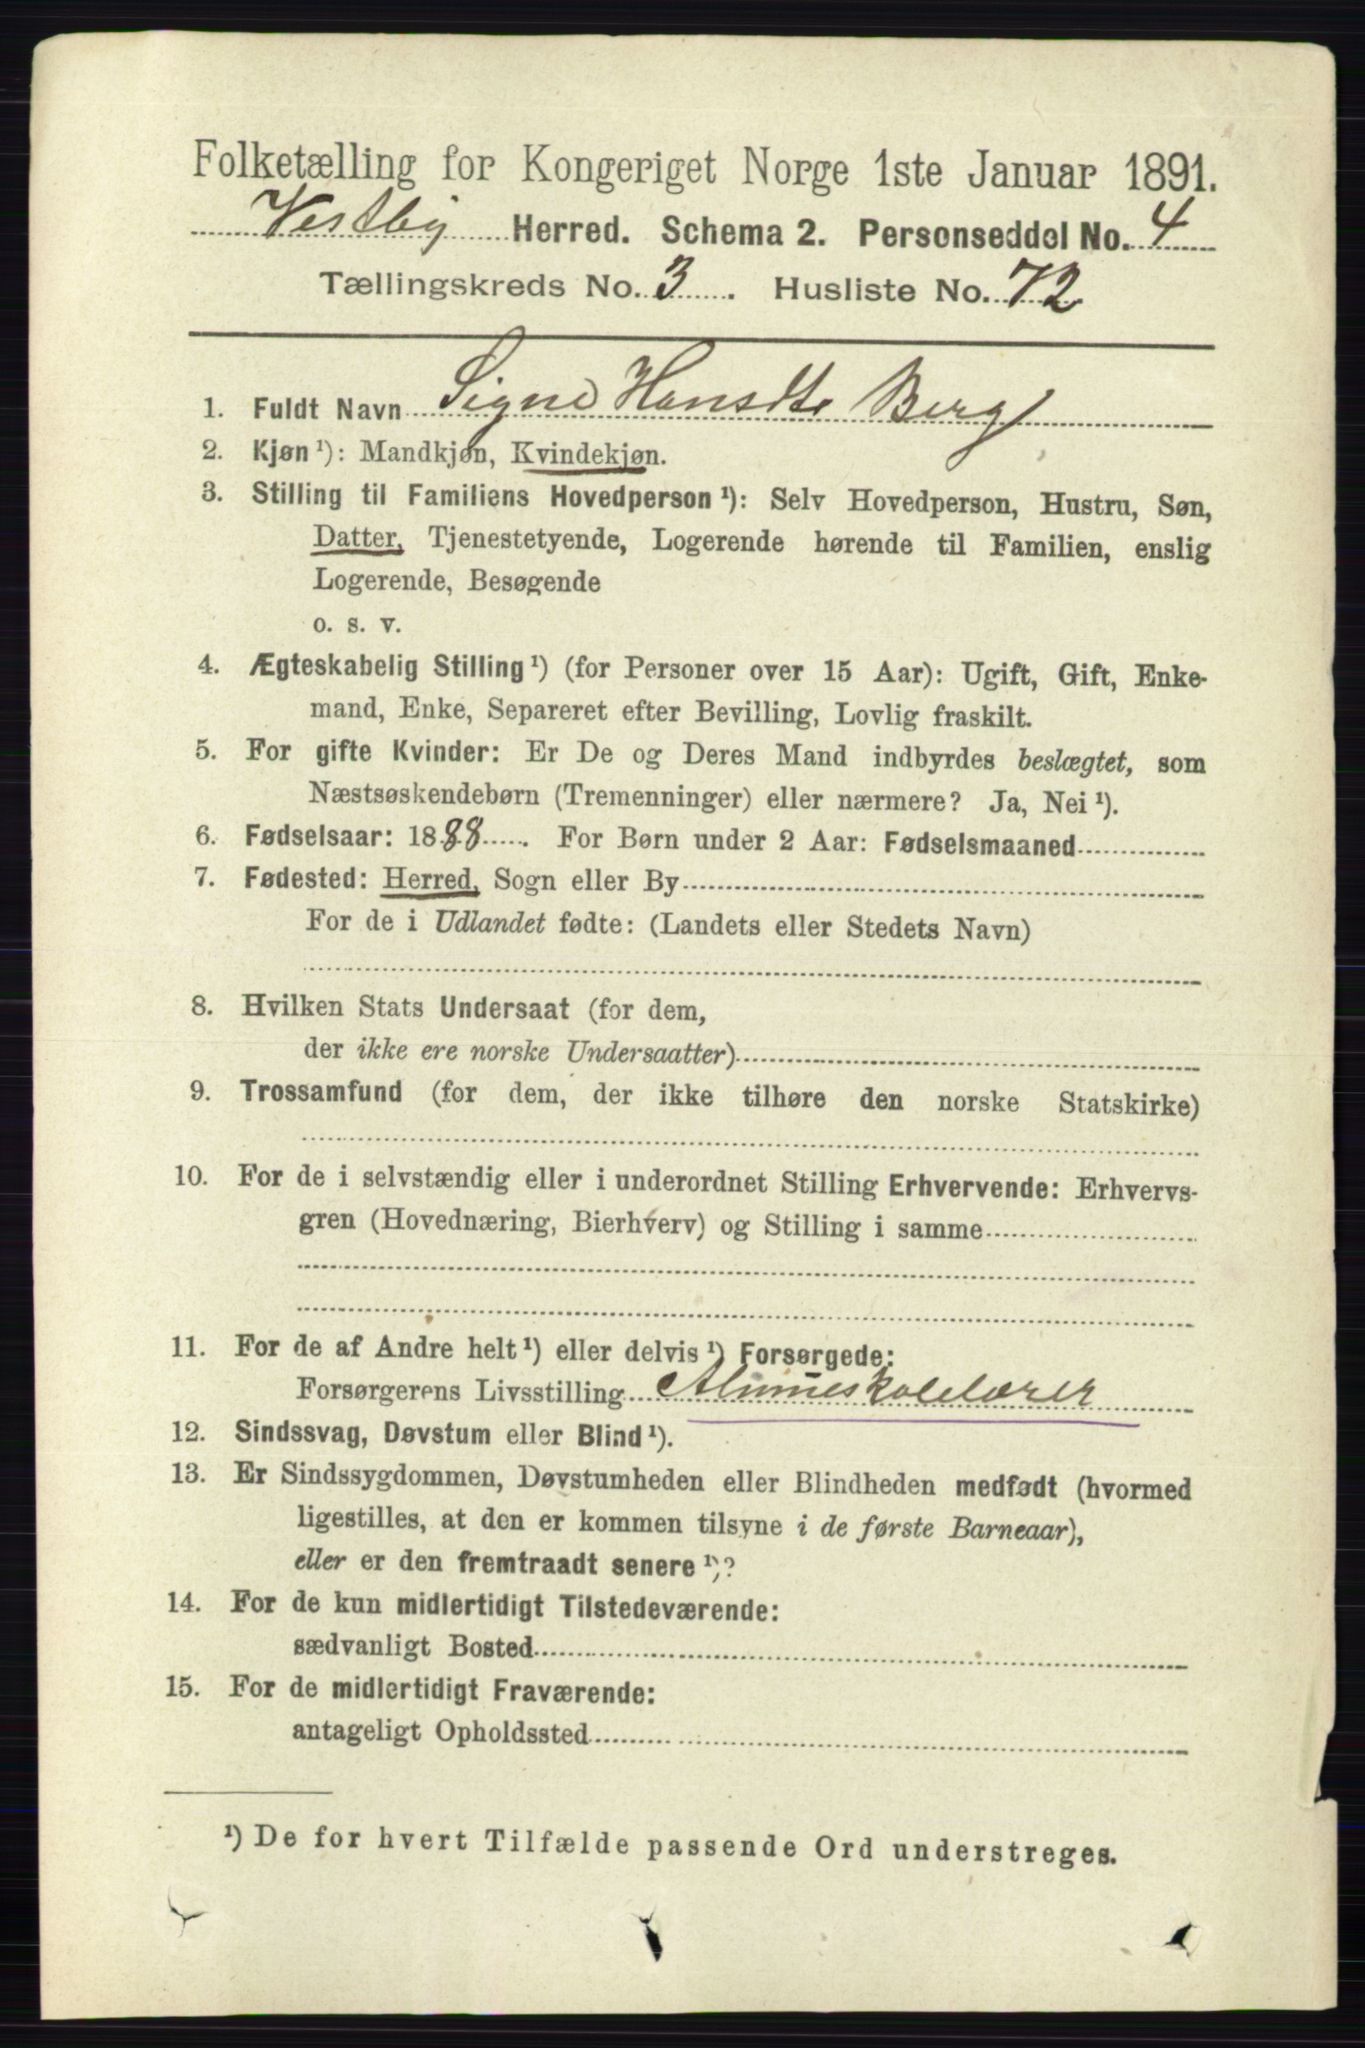 Folketælling for Kongeriget Norge 1ste Januar 1891.
Vestby Herred. Schema 2. Personseddel No. 4
Tællingskreds No. 3. Husliste No. 72
1. Fuldt Navn Signe Hansdtr Berg
2. Kjøn ¹): Mandkjøn, Kvindekjøn.
3. Stilling til Familiens Hovedperson ¹): Selv Hovedperson, Hustru, Søn,
Datter, Tjenestetyende, Logerende hørende til Familien, enslig
Logerende, Besøgende
o. s. v.
4. Ægteskabelig Stilling ¹) (for Personer over 15 Aar): Ugift, Gift, Enke-
mand, Enke, Separeret efter Bevilling, Lovlig fraskilt.
5. For gifte Kvinder: Er De og Deres Mand indbyrdes beslægtet, som
Næstsøskendebørn (Tremenninger) eller nærmere? Ja, Nei ¹).
6. Fødselsaar: 1888. For Børn under 2 Aar: Fødselsmaaned
7. Fødested: Herred, Sogn eller By
For de i Udlandet fødte: (Landets eller Stedets Navn)
8. Hvilken Stats Undersaat (for dem,
der ikke ere norske Undersaatter)
9. Trossamfund (for dem, der ikke tilhøre den norske Statskirke)
10. For de i selvstændig eller i underordnet Stilling Erhvervende: Erhvervs-
gren (Hovednæring, Bierhverv) og Stilling i samme
11. For de af Andre helt ¹) eller delvis ¹) Forsørgede:
Forsørgerens Livsstilling Almueskolelærer
12. Sindssvag, Døvstum eller Blind ¹).
13. Er Sindssygdommen, Døvstumheden eller Blindheden medfødt (hvormed
ligestilles, at den er kommen tilsyne i de første Barneaar),
eller er den fremtraadt senere ¹)?
14. For de kun midlertidigt Tilstedeværende:
sædvanligt Bosted
15. For de midlertidigt Fraværende:
antageligt Opholdssted
¹) De for hvert Tilfælde passende Ord understreges.